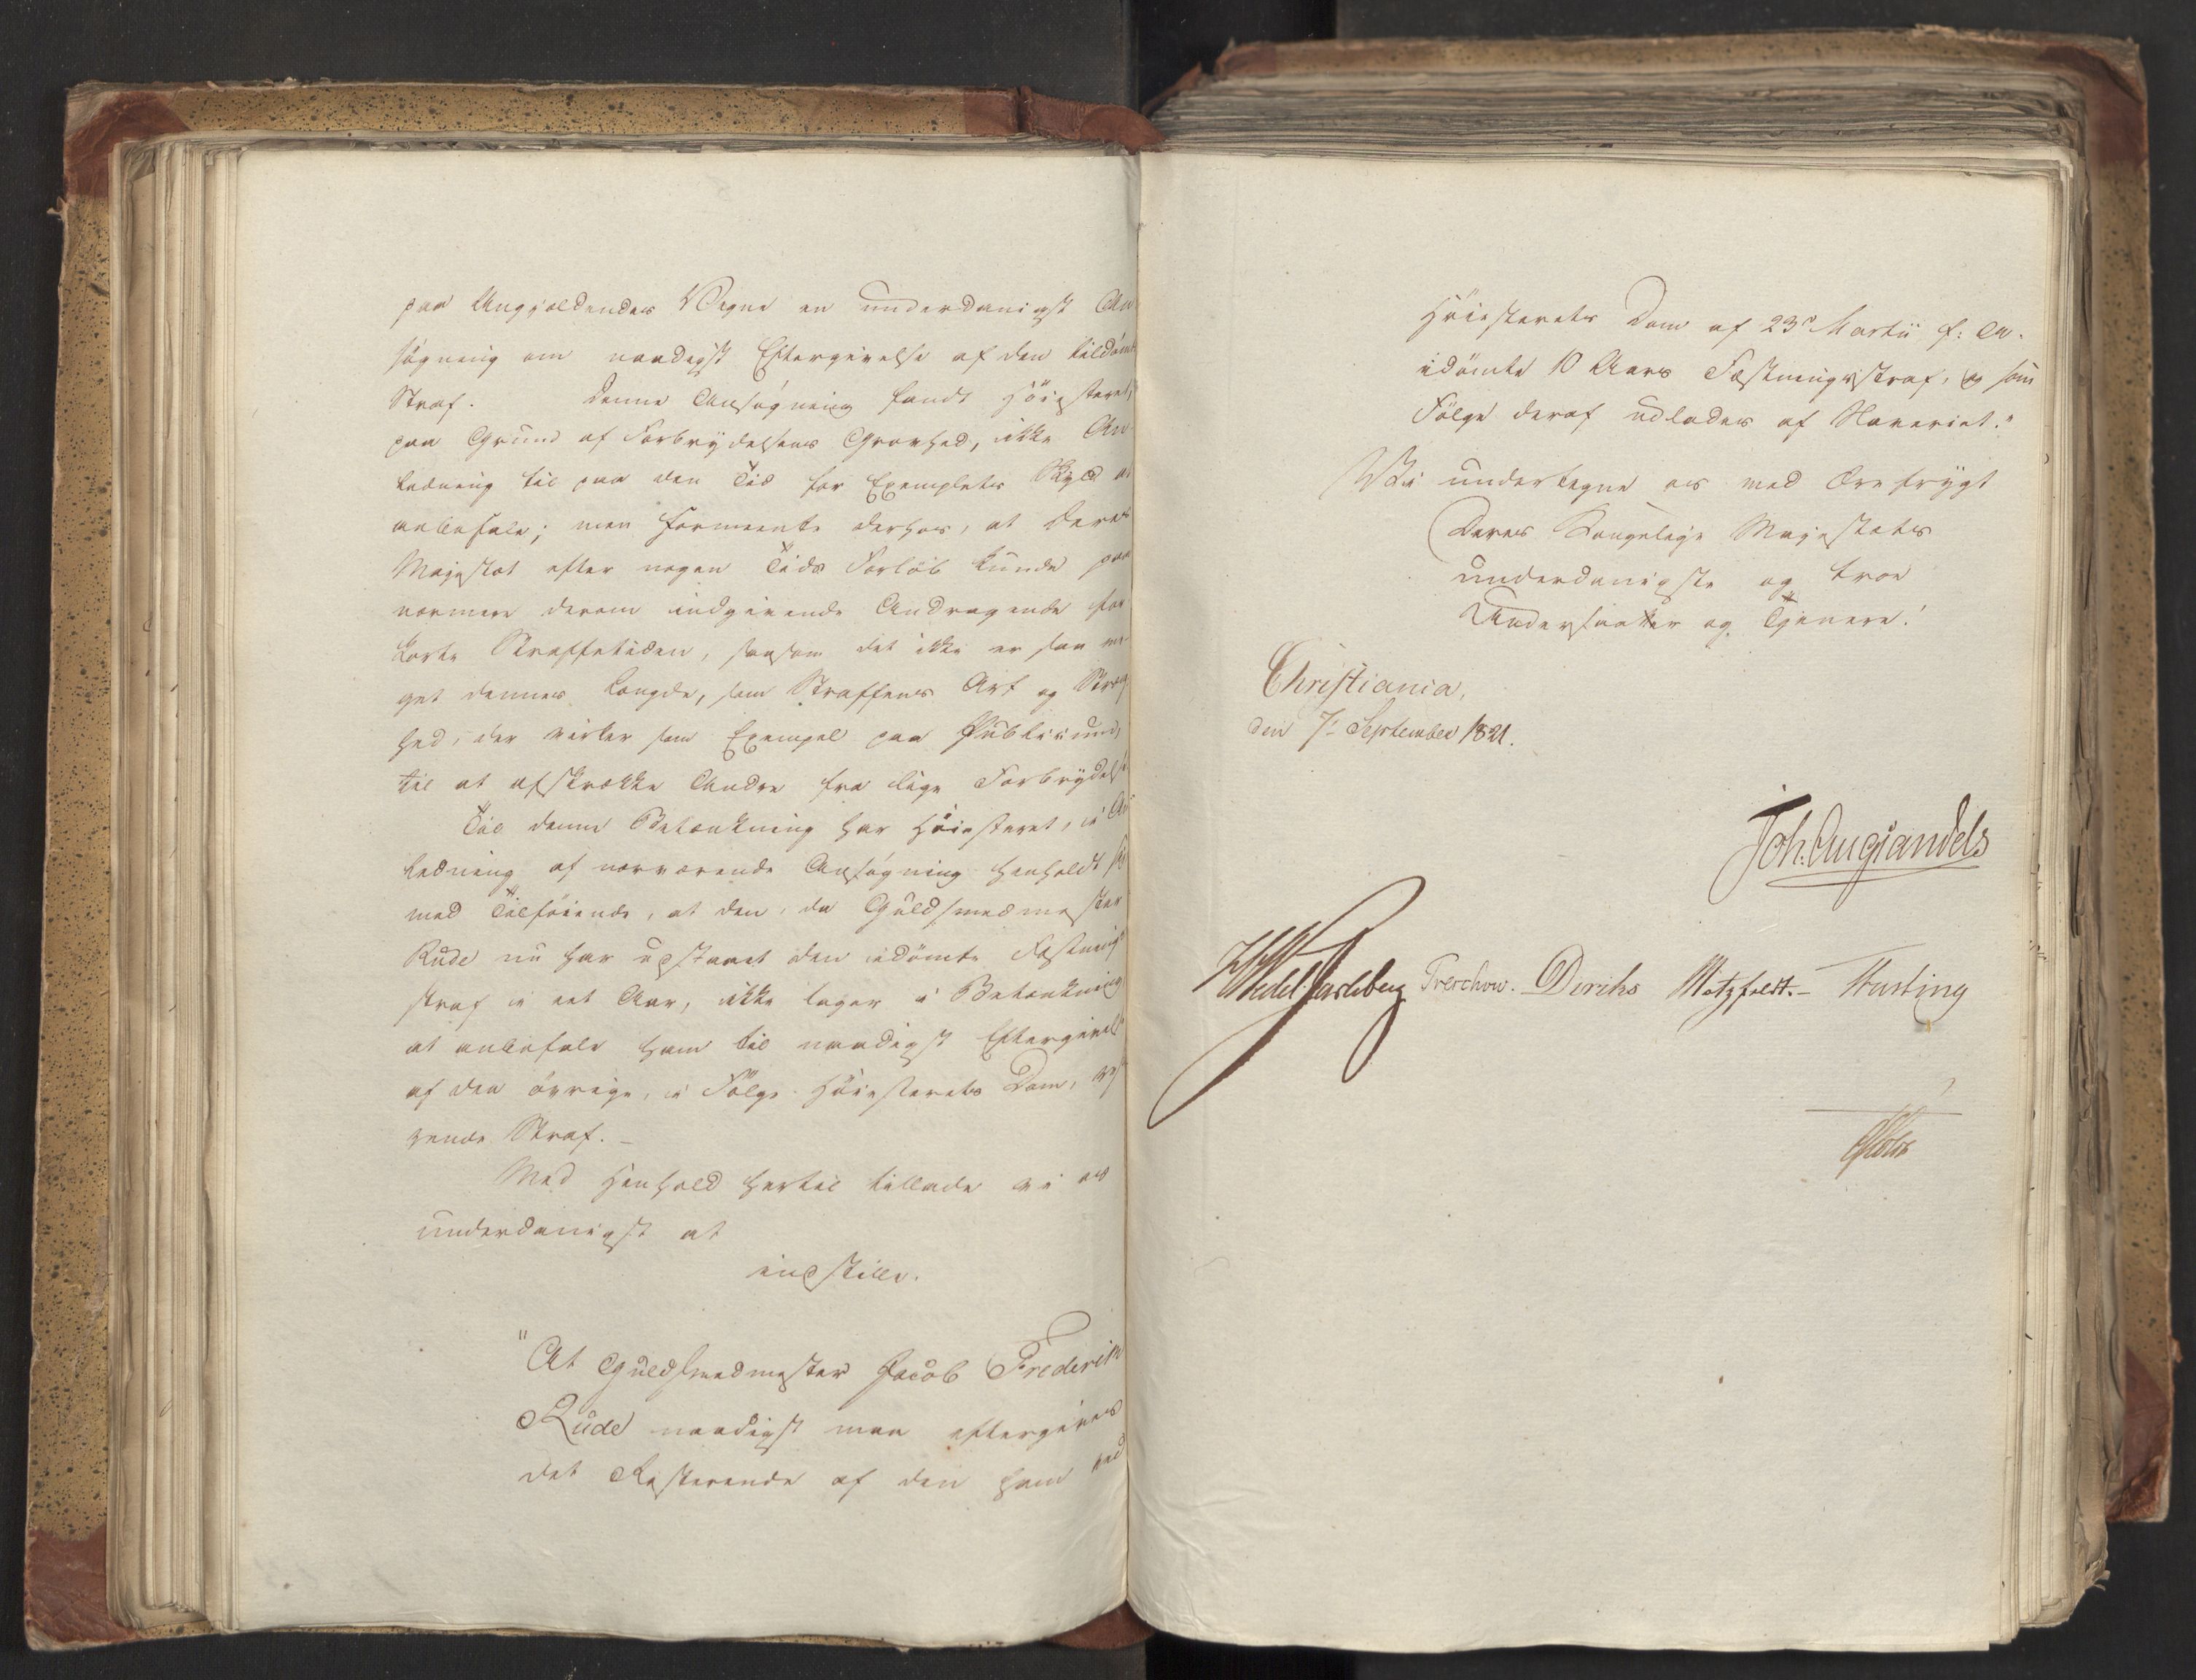 paa Ungjældendes Vegne en underdanigst An
søgning om naadigst Eftergivelse af den tildømte
Straf. Denne Ansøgning fandt Höiesteret,
paa Grund af Forbrydelsens Grovhed, ikke An
ledning til paa den Tid for Exemplets Skyld at
anbefale; men formeente derhos, at Deres
Majestæt efter nogen Tids Forløb kunde paa
nærmere derom indgivende Andragende for
korte Straffetiden, saasom det ikke er saa me
get dennes Længde, som Straffens Art og Stræng
hed, der virker som Exempel paa Publicum,
til at afskrække Andre fra lige Forbrydelse
Til denne Betænkning har Höiesteret, i An
ledning af nærværende Ansøgning henholdt sig
med Tilføiende, at den, da Guldsmedmester
Rude nu har udstaaet den idømte Fæstnings
straf i eet Aar, ikke tager i Betænkning
at anbefale ham til naadigst Eftergivelse
af den øvrige, i Følge Höiesterets Dom,
rende Straf. –
Med Henhold hertil tillade vi os
underdanigst at
indstille.
"At Guldsmedmester Jacob Frederik
Rude naadigst maa eftergives
det Resterende af den ham ved
Höiesterets Dom af 23de Martii f: A.
idømte 10 Aars Fæstningsstraf, og som
Følge deraf udlades af Slaveriet."
Vi undertegne os med Ærefrygt
Deres Kongelige Majestæts
underdanigste og troe
Undersaatter og Tjenere!
Christiania,
den 7de September 1821.
Joh. Aug Sandels
Wedel Jarlsberg Treschow. Diriks Motzfeldt. – Fasting